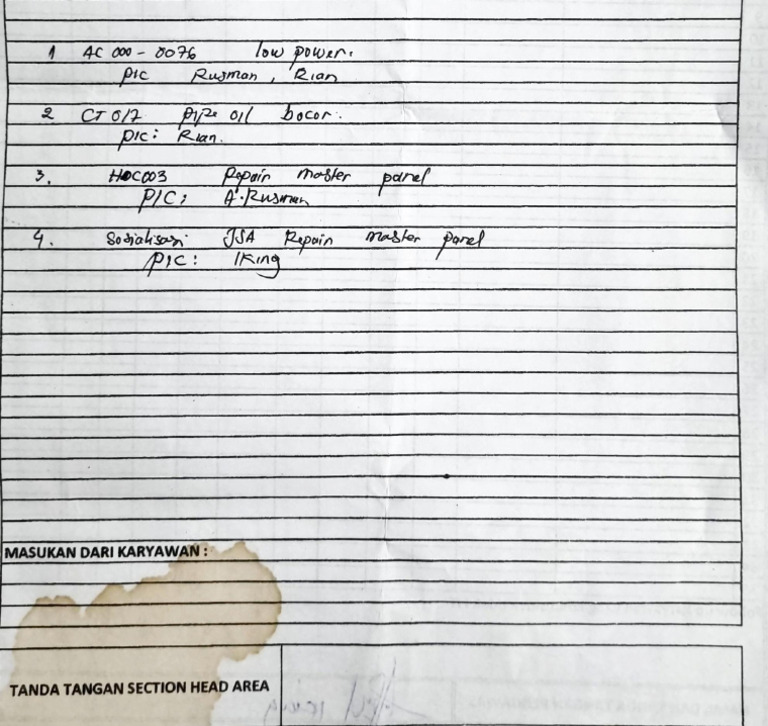 1 AC 000 - 0076 low power.
PIC Rusman, Rian
2 CT 017 pipe oil bocor.
PIC: Rian.
3. HOC003 Repair master panel
PIC: A. Rusman
4. Sosialisasi JSA Repair master panel
PIC: Iking
MASUKAN DARI KARYAWAN :
TANDA TANGAN SECTION HEAD AREA